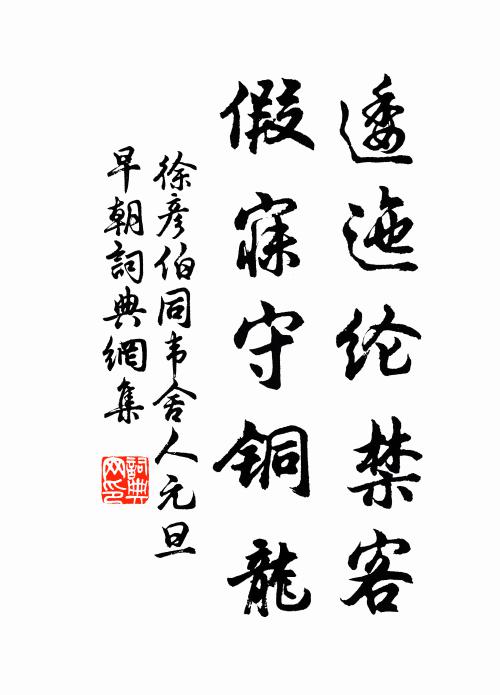 逶迤纶禁客
假寐守铜龍
徐彦伯同韦舍人元旦
早朝詞典網集
詞典
网印